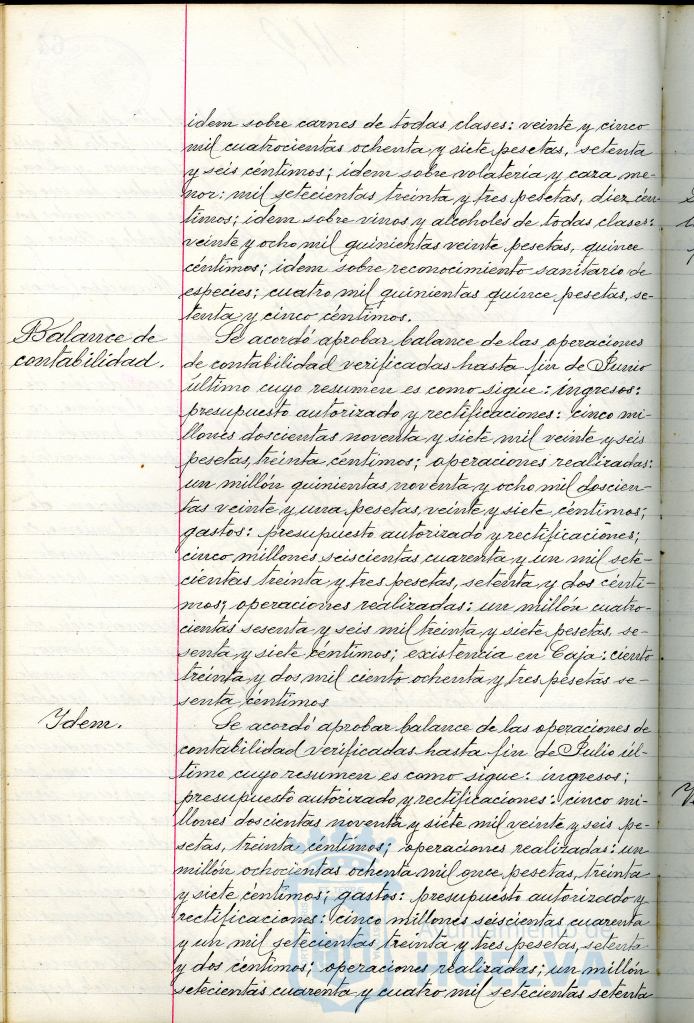 idem sobre carnes de todas clases: veinte y cinco
mil cuatrocientas ochenta y siete pesetas, setenta
y seis céntimos; idem sobre volatería y caza me-
nor: mil setecientas treinta y tres pesetas, diez cén-
timos; idem sobre vinos y alcoholes de todas clases:
veinte y ocho mil quinientas veinte pesetas, quince
céntimos; idem sobre reconocimiento sanitario de
especies; cuatro mil quinientas quince pesetas, se-
tenta y cinco céntimos.
Balance de
contabilidad.
Se acordó aprobar balance de las operaciones
de contabilidad verificadas hasta fin de Junio
último cuyo resumen es como sigue: ingresos:
presupuesto autorizado y rectificaciones: cinco mi-
llones doscientas noventa y siete mil veinte y seis
pesetas, treinta céntimos; operaciones realizadas:
un millón quinientas noventa y ocho mil doscien-
tas veinte y una pesetas, veinte y siete céntimos;
gastos: presupuesto autorizado y rectificaciones;
cinco millones seiscientas cuarenta y un mil sete-
cientas treinta y tres pesetas, setenta y dos cénti-
mos; operaciones realizadas: un millón cuatro-
cientas sesenta y seis mil treinta y siete pesetas, se-
senta y siete céntimos; existencia en Caja: ciento
treinta y dos mil ciento ochenta y tres pesetas se-
senta céntimos
Ydem.
Se acordó aprobar balance de las operaciones de
contabilidad verificadas hasta fin de Julio úl-
timo cuyo resumen es como sigue: ingresos;
presupuesto autorizado y rectificaciones: cinco mi-
llones doscientas noventa y siete mil veinte y seis pe-
setas, treinta céntimos; operaciones realizadas: un
millón ochocientas ochenta mil once pesetas, treinta
y siete céntimos; gastos: presupuesto autorizado y
rectificaciones: cinco millones seiscientas cuarenta
y un mil setecientas treinta y tres pesetas, setenta
y dos céntimos; operaciones realizadas; un millón
setecientas cuarenta y cuatro mil setecientas setenta
Ayuntamiento de
HUELVA